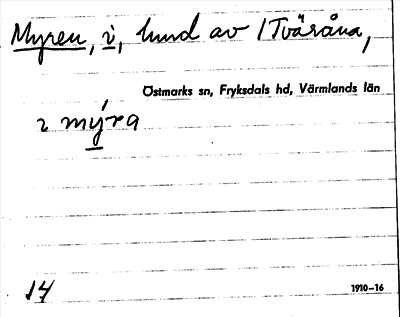 Myren, i, hund av 1 Tväråna,
Östmarks sn, Fryksdals hd, Värmlands län
i mýra
14
1910-16